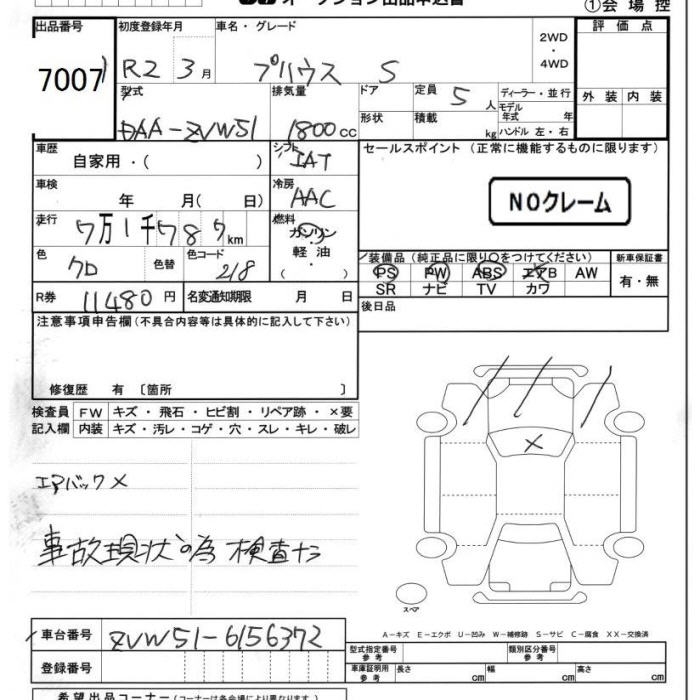 オークション出品申込書
①会場控
出品番号 7007
初度登録年月 R2 3月
車名・グレード プリウス S
2WD・4WD
評価点
型式 DAA-ZVW51
排気量 1800cc
ドア
形状
定員 5人
積載 kg
ディーラー・並行
モデル年式 年
ハンドル 左・右
外装 内装
車歴 自家用・( )
シフト IAT
セールスポイント (正常に機能するものに限ります)
NOクレーム
車検 年 月( 日)
冷房 AAC
走行 7万1千787km
燃料 ガソリン・軽油・
色 クロ
色替
色コード 218
装備品 (純正品に限り○をつけてください)
PS PW ABS エアB AW
SR ナビ TV カワ
新車保証書 有・無
R券 11480円
名変通知期限 月 日
後日品
注意事項申告欄 (不具合内容等は具体的に記入して下さい)
修復歴 有 〔箇所 〕
検査員記入欄
FW キズ・飛石・ヒビ割・リペア跡・×要
内装 キズ・汚レ・コゲ・穴・スレ・キレ・破レ
エアバック×
事故現状の為 検査ナシ
スペア
A-キズ E-エクボ U-凹み W-補修跡 S-サビ C-腐食 XX-交換済
車台番号 ZVW51-6156372
登録番号
型式指定番号 参考
類別区分番号 参考
車庫証明用 参考 長さ cm 幅 cm 高さ cm
希望出品コーナー (コーナーは各会場により異なります)